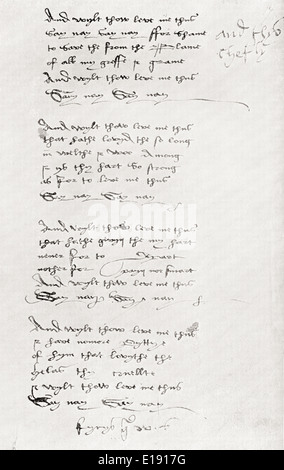 And wylt thow leve me thus
Say nay Say nay ffor shame
to save the from the blame
of all my greffe & grame
And wylt thow leve me thus
Say nay Say nay
And this
chefly
And wylt thow leve me thus
that hathe lovyd the so long
in welthe & woo Among
& ys thy hart so strong
as for to leve me thus
Say nay Say nay
And wylt thow leve me thus
that hathe gevyn the my hart
never for to Depart
nother for payn nor smart
And wylt thow leve me thus
Say nay Say nay
And wylt thow leve me thus
& have nomore Pyttye
of hym that lovythe the
helas thy cruellte
& wylt thow leve me thus
Say nay Say nay
fynys
alamy
E1917G